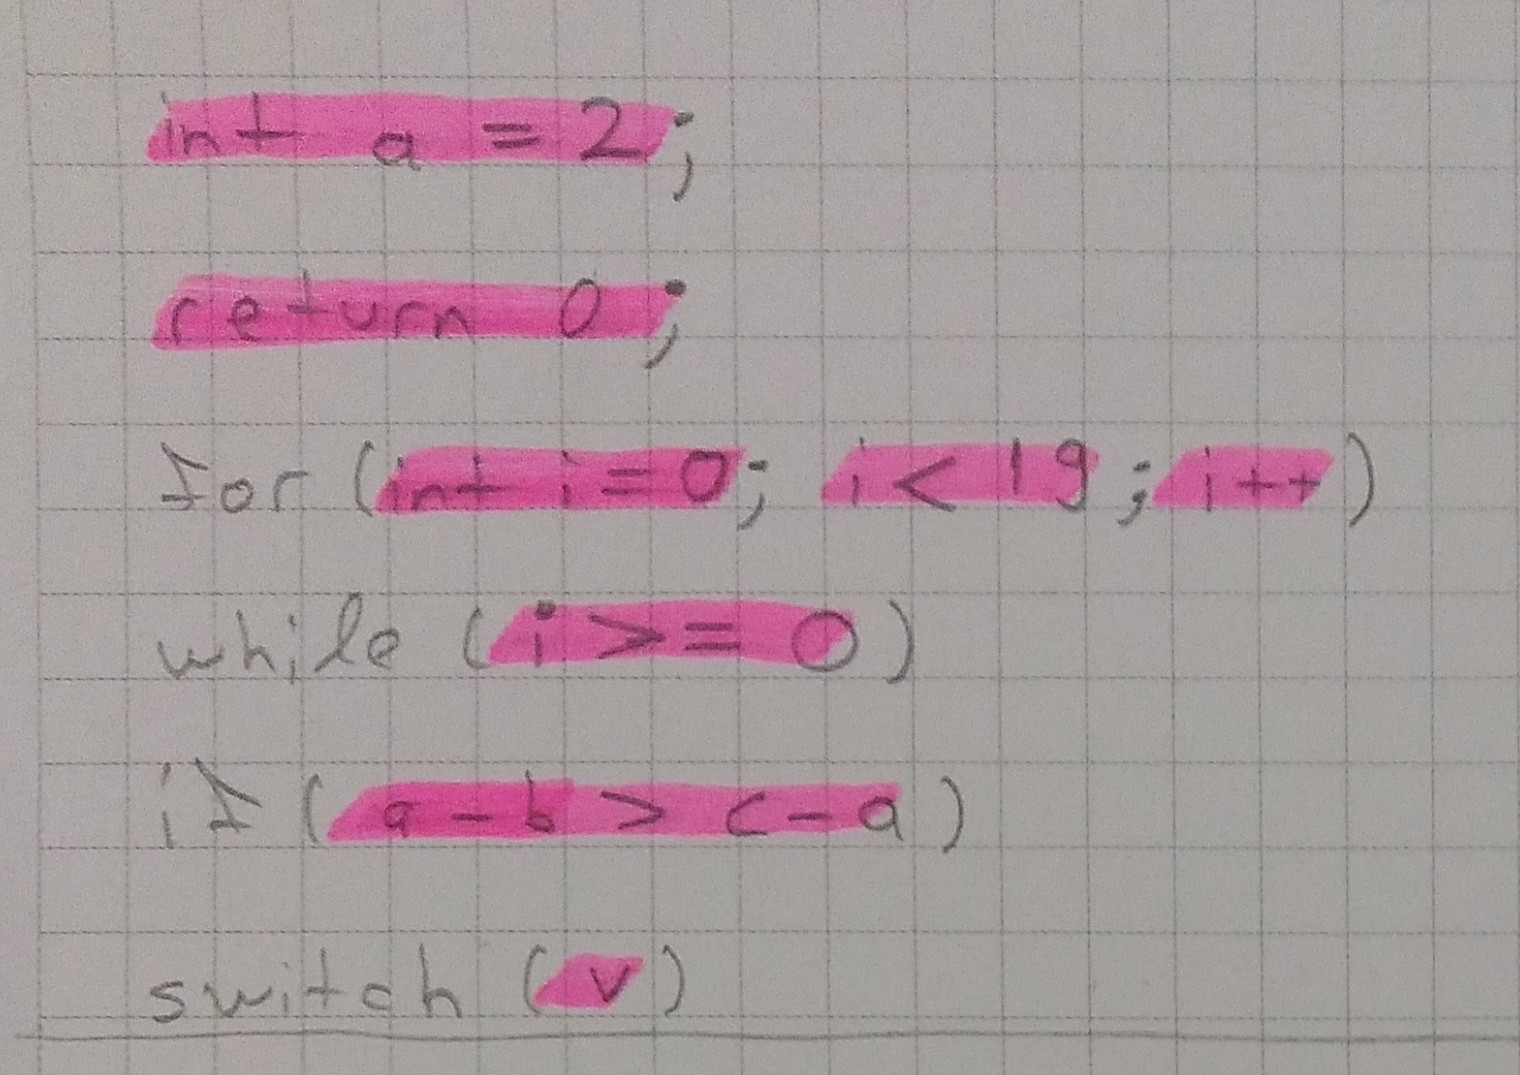 int a = 2;
return 0;
for (int i = 0; i < 19; i++)
while (i >= 0)
if (a - b > c - a)
switch (v)